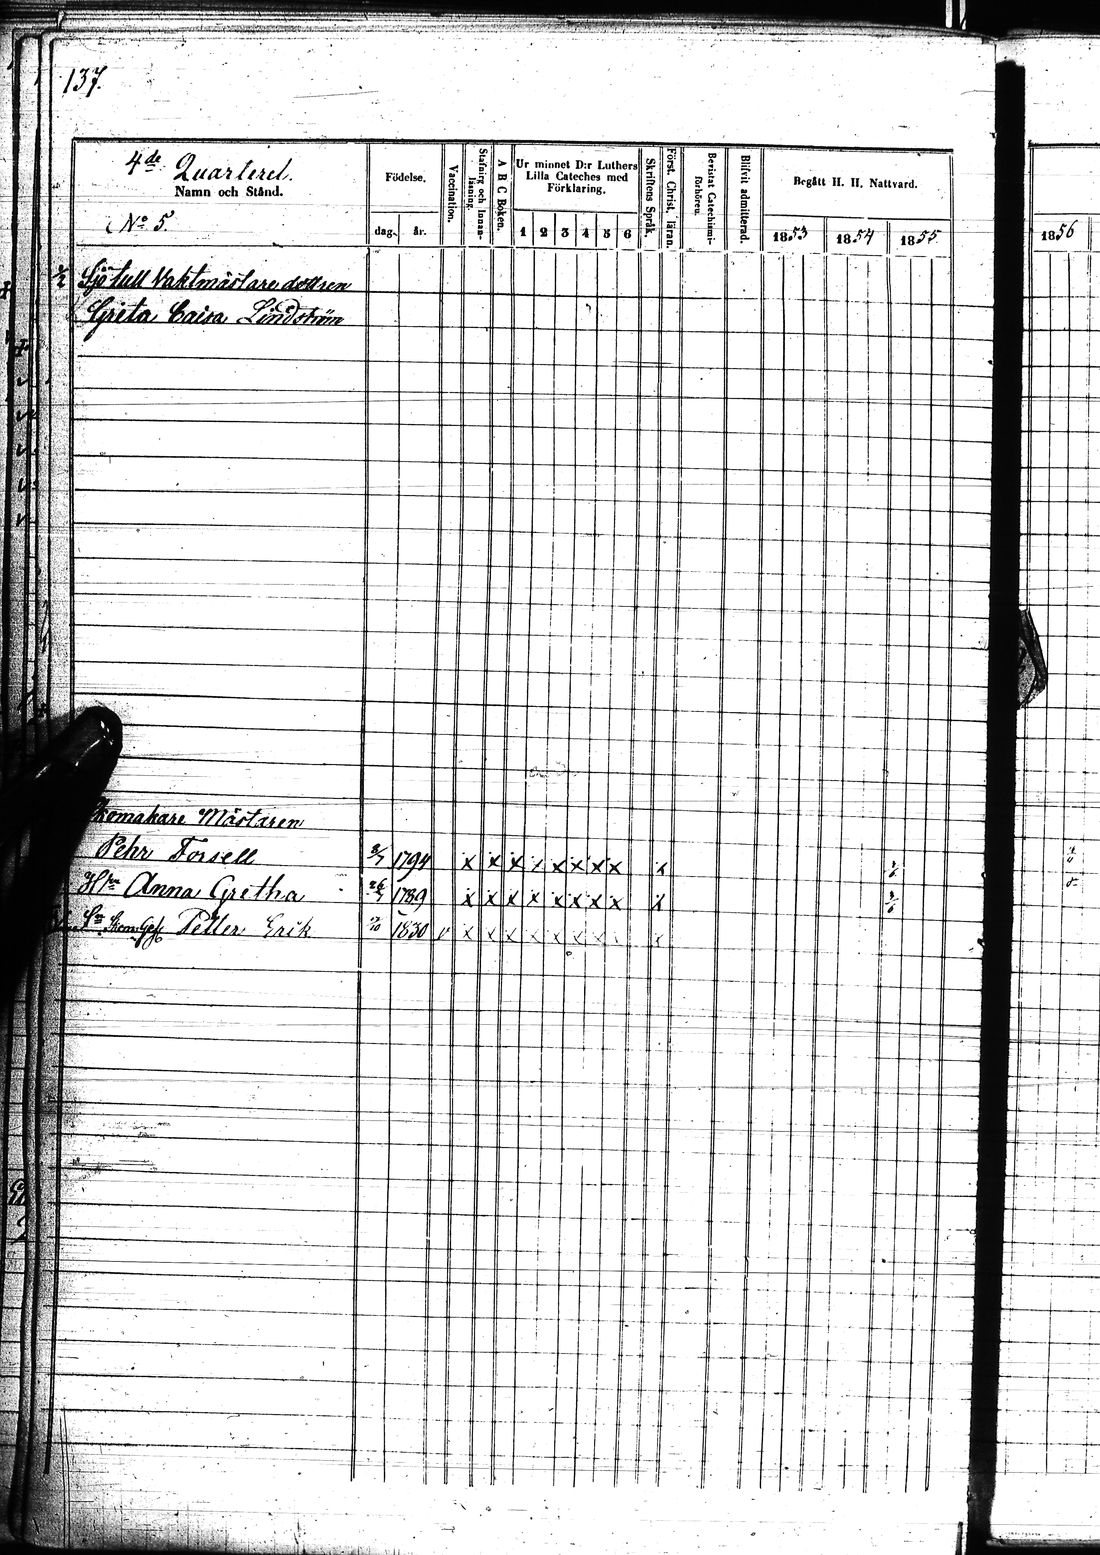 137.
4de Quarteret.
Namn och Stånd.
No 5.
Födelse.
dag. år.
Vaccination.
Stafning och Innan-läsning.
A B C Boken.
Ur minnet D:r Luthers
Lilla Cateches med
Förklaring.
1 2 3 4 5 6
Skriftens Språk.
Först. Christ. läran.
Bevistat Catechismi-förhören.
Blifvit admitterad.
Begått H. H. Nattvard.
1853 1854 1855
1856
Sjötull Vaktmästare dottren
Greta Caisa Lindström
Skomakare Mästaren
Pehr Forsell 1794 x x x x x x x x x
Hru Anna Gretha 26/7 1789 x x x x x x x x x
Sn Skom. Ges. Petter Erik 1830 v x x x x x x x x x